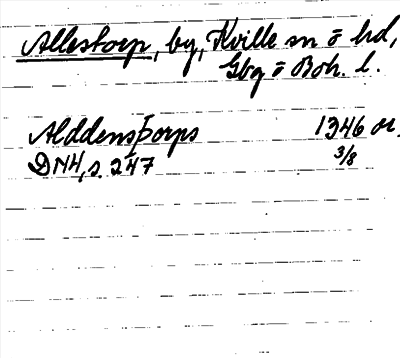 Allestorp, by, Kville sn o hd,
Gbg o Boh. l.
Alddensþorps 1346 or.
DN4, s. 247 3/8